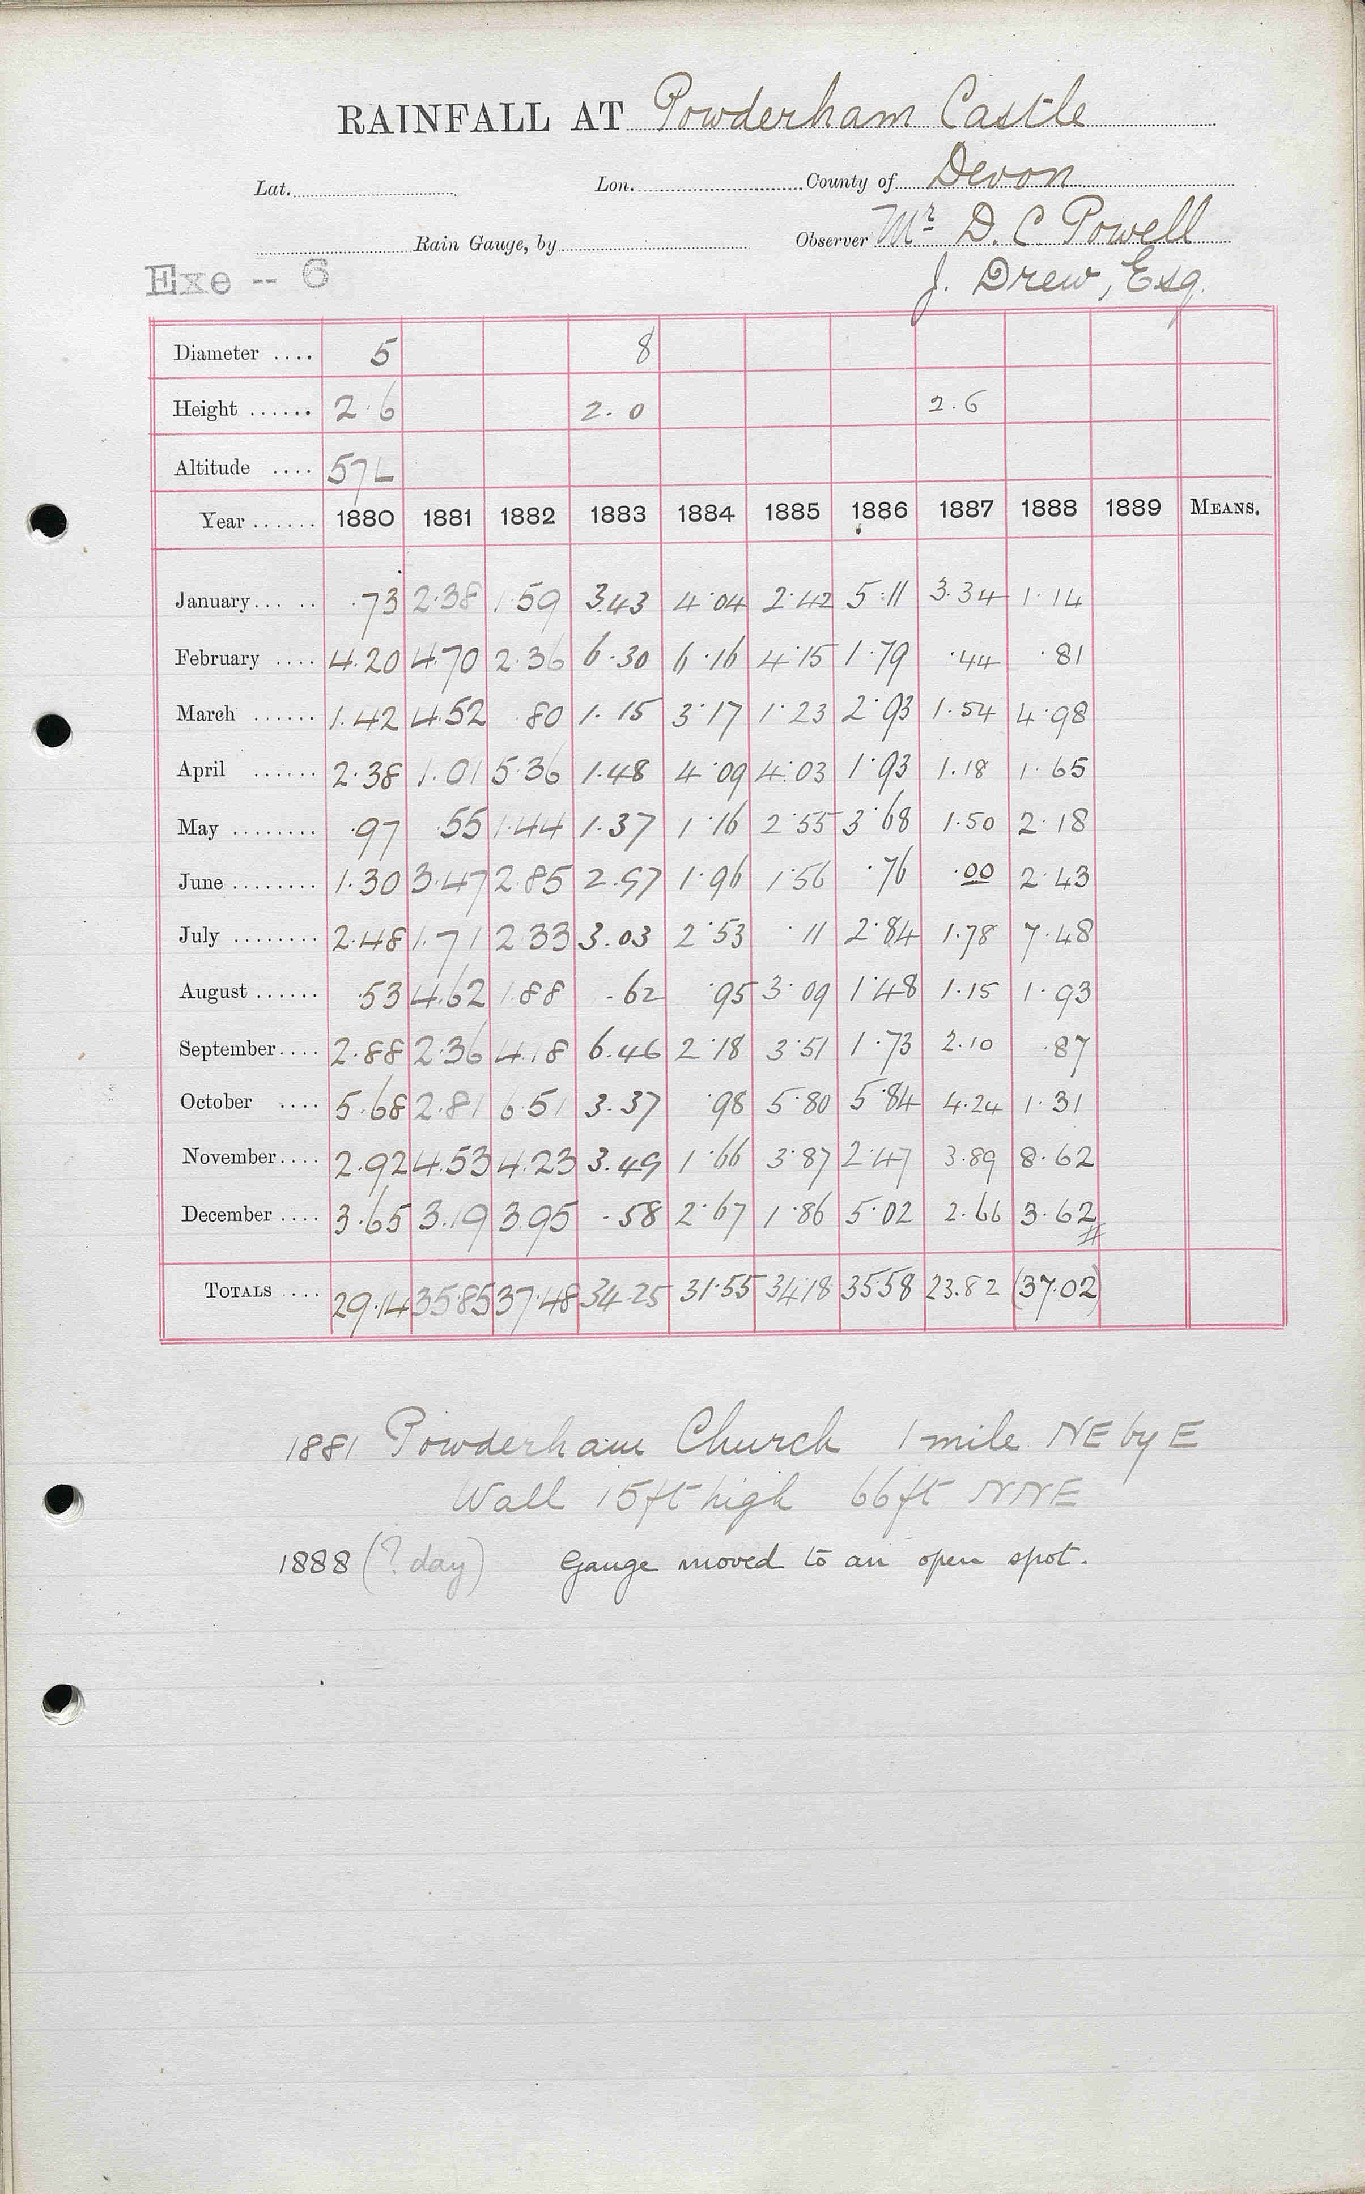 RAINFALL AT Powderham Castle
Lat. Lon. County of Devon
Rain Gauge, by Observer Mr D. C. Powell
Exe -- 6 J. Drew, Esq.
Diameter .... 5 8
Height ...... 2.6 2.0 2.6
Altitude .... 57 L
Year ...... 1880 1881 1882 1883 1884 1885 1886 1887 1888 1889 MEANS.
January... .. .73 2.38 1.59 3.43 4.04 2.42 5.11 3.34 1.14
February .... 4.20 4.70 2.36 6.30 6.16 4.15 1.79 .44 .81
March ...... 1.42 4.52 .80 1.15 3.17 1.23 2.93 1.54 4.98
April ...... 2.38 1.01 5.36 1.48 4.09 4.03 1.93 1.18 1.65
May ........ .97 .55 1.44 1.37 1.16 2.55 3.68 1.50 2.18
June ........ 1.30 3.47 2.85 2.97 1.96 1.56 .76 .00 2.43
July ........ 2.48 1.71 2.33 3.03 2.53 .11 2.84 1.78 7.48
August ...... .53 4.62 1.88 .62 .95 3.09 1.48 1.15 1.93
September.... 2.88 2.36 4.18 6.46 2.18 3.51 1.73 2.10 .87
October .... 5.68 2.81 6.51 3.37 .98 5.80 5.84 4.24 1.31
November.... 2.92 4.53 4.23 3.49 1.66 3.87 2.47 3.89 8.62
December .... 3.65 3.19 3.95 .58 2.67 1.86 5.02 2.66 3.62
TOTALS .... 29.14 35.85 37.48 34.25 31.55 34.18 35.58 23.82 (37.02)
1881 Powderham Church 1 mile NE by E
Wall 15ft high 66ft NNE
1888 (? day) Gauge moved to an open spot.